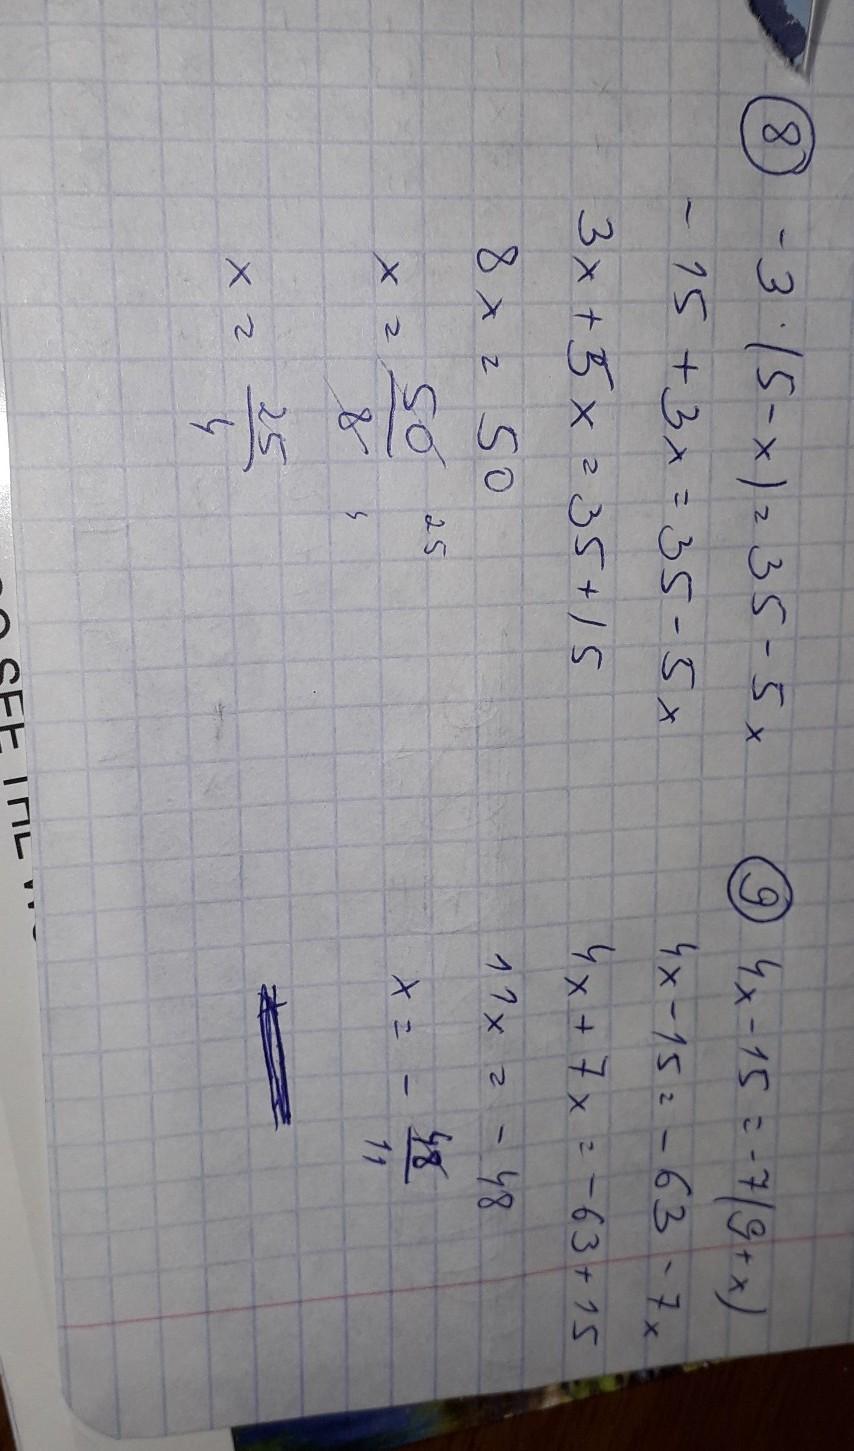 8 -3·(5-x)=35-5x
-15+3x=35-5x
3x+5x=35+15
8x=50
x=50/8 25
x=25/4
9 4x-15=-7(9+x)
4x-15=-63-7x
4x+7x=-63+15
11x=-48
x=-48/11
SEE THE